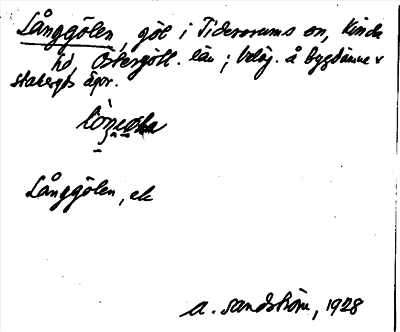 Långgölen, göl i Tidersrums sn, Kinda
hd Östergötl. län; beläg. å bygdinne v
stabergs ägor.
Långgölen, ek
A. Sandström, 1928